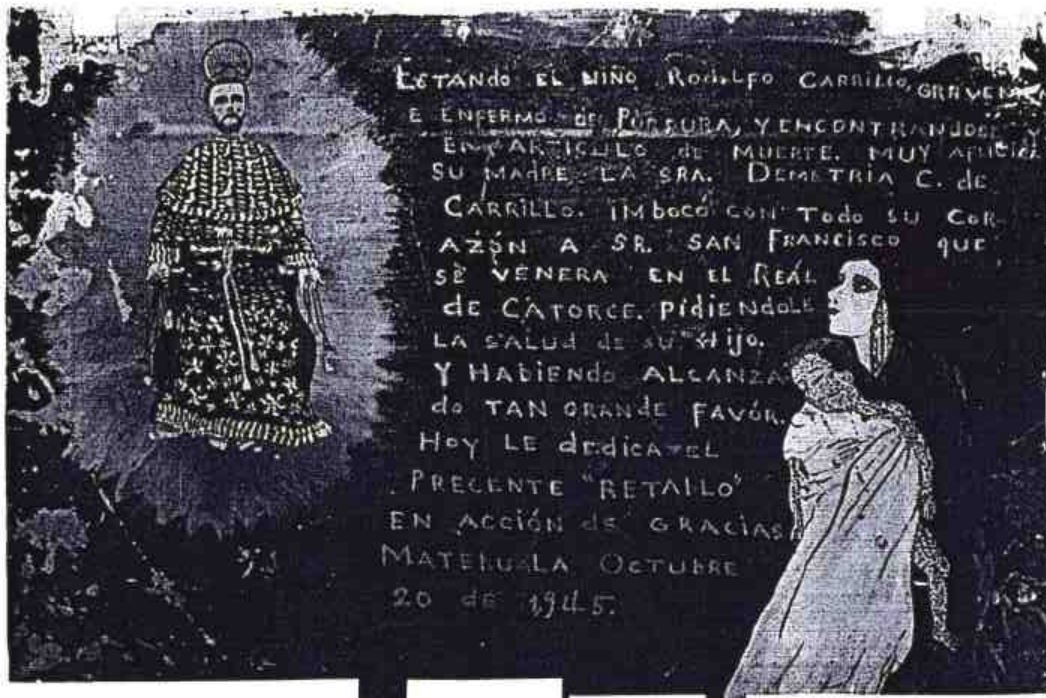 ESTANDO EL NIÑO RODOLFO CARRILLO, GRAVEMEN
E ENFERMO de PÚRPURA, Y ENCONTRANDOSE Y
EN ARTICULO de MUERTE. MUY AFLIGIDA
SU MADRE LA SRA. DEMETRIA C. de
CARRILLO. IMBOCÓ CON TODO SU COR-
AZÓN A SR. SAN FRANCISCO que
SE VENERA EN EL REÁL
de CATORCE. PidiENdolE
LA SALUd de SU HIJO.
Y HABIENdo ALCANZA
do TAN GRANdE FAVÓR.
HOY LE dEdICA EL
PRECENTE "RETAILO"
EN ACCIÓN dE GRACIAS
MATEHUALA OCTUBRE
20 dE 1945.